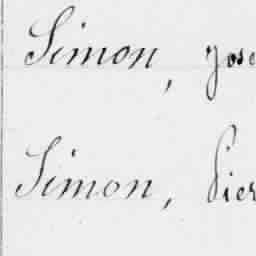 Simon, Jose
Simon, Pier